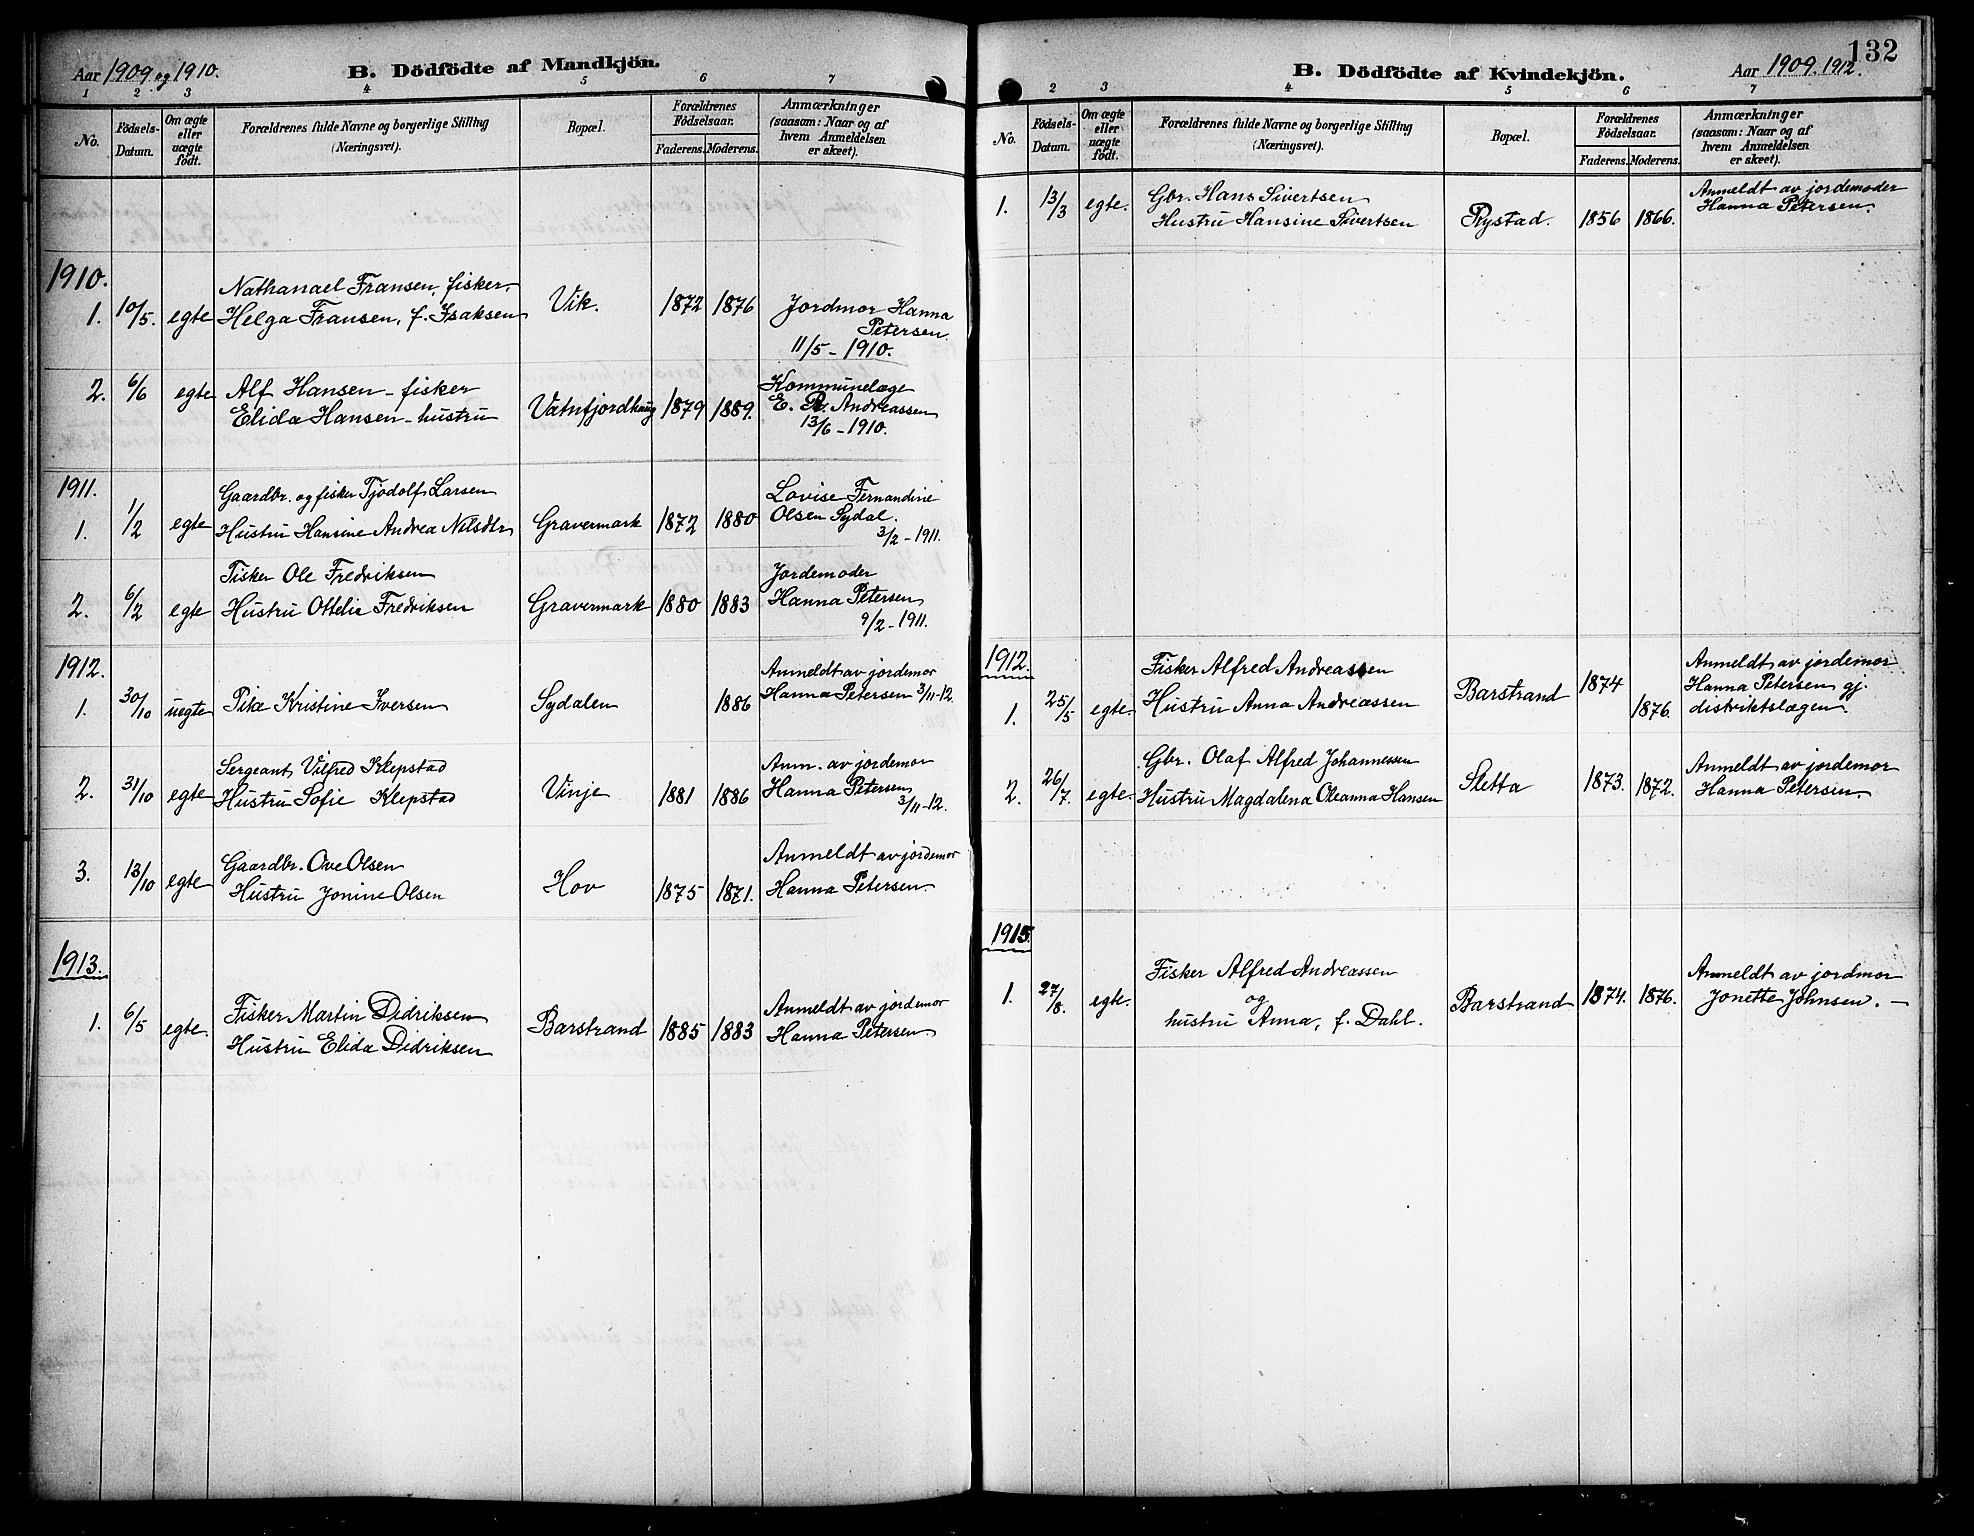 Aar 1909 og 1910.
B. Dödfödte af Mandkjön.
1 2 3 4 5 6 7
No.
Födsels-
Datum.
Om ægte
eller
uægte
födt.
Forældrenes fulde Navne og borgerlige Stilling
(Næringsvei).
Bopæl.
Forældrenes
Födselsaar.
Faderens. Moderens.
Anmærkninger
(saasom: Naar og af
hvem Anmeldelsen
er skeet).
1910.
1. 10/5. egte
Nathanael Fransen, fisker,
Helga Fransen, f. Isaksen
Vik.
1872 1876
Jordmor Hanna
Petersen
11/5 - 1910.
2. 6/6 egte
Alf Hansen - fisker
Elida Hansen - hustru
Vatnfjordhaug 1879 1889.
Kommunelæge
E. R. Andreassen
13/6 - 1910.
1911.
1. 1/2 egte
Gaardbr. og fisker Tjodolf Larsen
Hustru Hansine Andrea Nilsdtr
Gravermark 1872 1880
Lovise Fernandine
Olsen Sydal.
3/2 - 1911.
2. 6/2 egte
Fisker Ole Fredriksen
Hustru Ottelie Fredriksen
Gravermark 1880 1883
Jordemoder
Hanna Petersen
9/2 - 1911.
1912.
1. 30/10 uegte
Pike Kristine Iversen
Sydalen 1886
Anmeldt av jordemor
Hanna Petersen 3/11-12.
2. 31/10 egte
Sergeant Vilfred Klepstad
Hustru Sofie Klepstad
Vinje 1881 1886
Anm. av jordemor
Hanna Petersen
3/11-12.
3. 13/10 egte
Gaardbr. Ove Olsen
Hustru Jonine Olsen
Hov 1875 1871.
Anmeldt av jordemor
Hanna Petersen.
1913.
1. 6/5 egte.
Fisker Martin Didriksen
Hustru Elida Didriksen
Barstrand 1885 1883
Anmeldt av jordemor
Hanna Petersen
132
B. Dödfödte af Kvindekjön.
Aar 1909. 1912.
2 3 4 5 6 7
No.
Födsels-
Datum.
Om ægte
eller
uægte
födt.
Forældrenes fulde Navne og borgerlige Stilling
(Næringsvei).
Bopæl.
Forældrenes
Födselsaar.
Faderens. Moderens.
Anmærkninger
(saasom: Naar og af
hvem Anmeldelsen
er skeet).
1. 13/3 egte.
Gbr. Hans Sivertsen
Hustru Hansine Sivertsen
Rystad. 1856 1866.
Anmeldt av jordemoder
Hanna Petersen.
1912.
1. 25/5 egte.
Fisker Alfred Andreassen
Hustru Anna Andreassen
Barstrand 1874 1876.
Anmeldt av jordemor
Hanna Petersen gj.
distriktslægen.
2. 26/7. egte.
Gbr. Olaf Alfred Johannessen
Hustru Magdalena Oleanna Hansen
Sletta 1873. 1872.
Anmeldt av jordemor
Hanna Petersen.
1915.
1. 27/8. egte.
Fisker Alfred Andreassen
og
hustru Anna, f. Dahl.
Barstrand 1874. 1876.
Anmeldt av jordmor
Jonette Johnsen. —